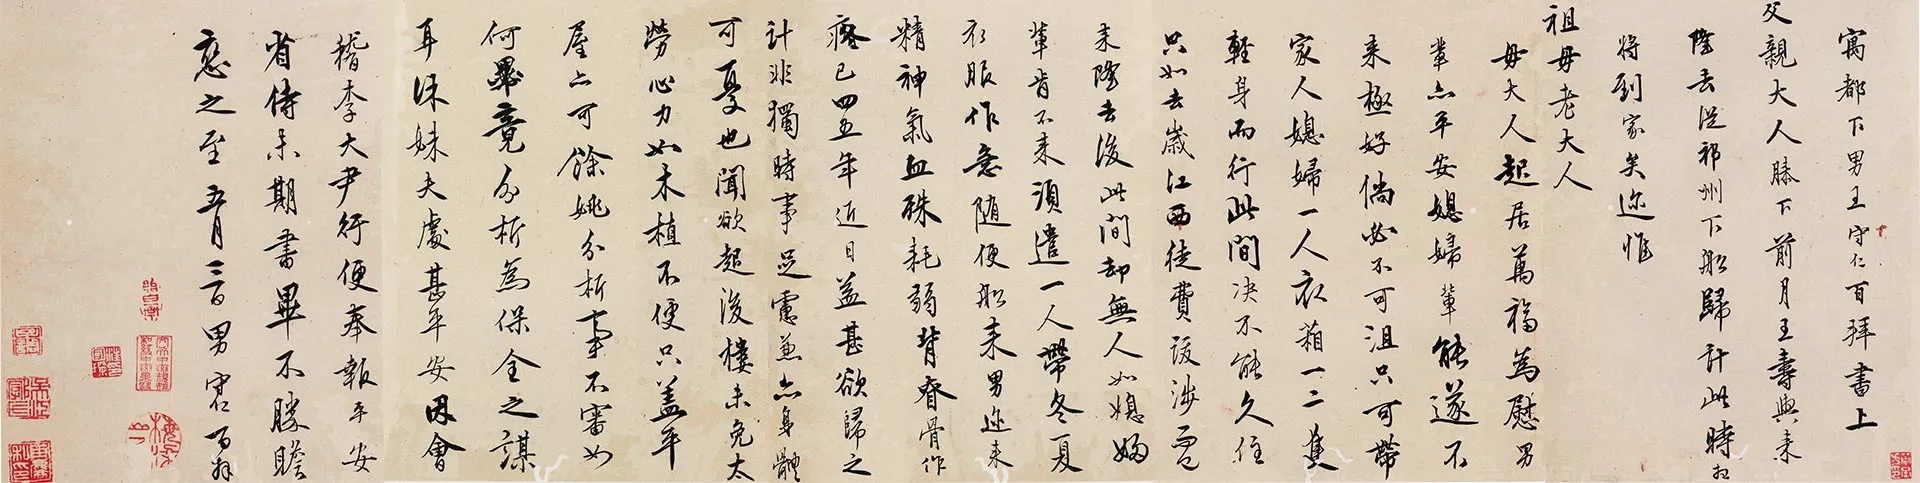 寓都下男王守仁百拜書上
父親大人膝下前月王壽與來
隆去從祁州下船歸計此時想
將到家矣迩惟
祖母老大人
母大人起居萬福為慰男
輩亦平安媳婦輩能遂不
来極好倘必不可沮只可帶
家人媳婦一人衣箱一二隻
輕身而行此間决不能久住
只如去歲江西徒費跋涉而
来隆去後此間却無人如媳婦
輩肯不来須遣一人帶冬夏
衣服作急随便船来男迩来
精神氣血殊耗弱背脊骨作
疼已四五年近日益甚欲歸之
計非獨時事足慮兼亦身體
可憂也聞欲起後樓未免太
勞心力如木植不便只盖平
屋亦可餘姚分析事不審如
何畢竟分析為保全之謀
耳徐妹夫處甚平安因會
稽李大尹行便奉報平安
省侍未期書畢不勝瞻
戀之至五月三日男守仁百拜